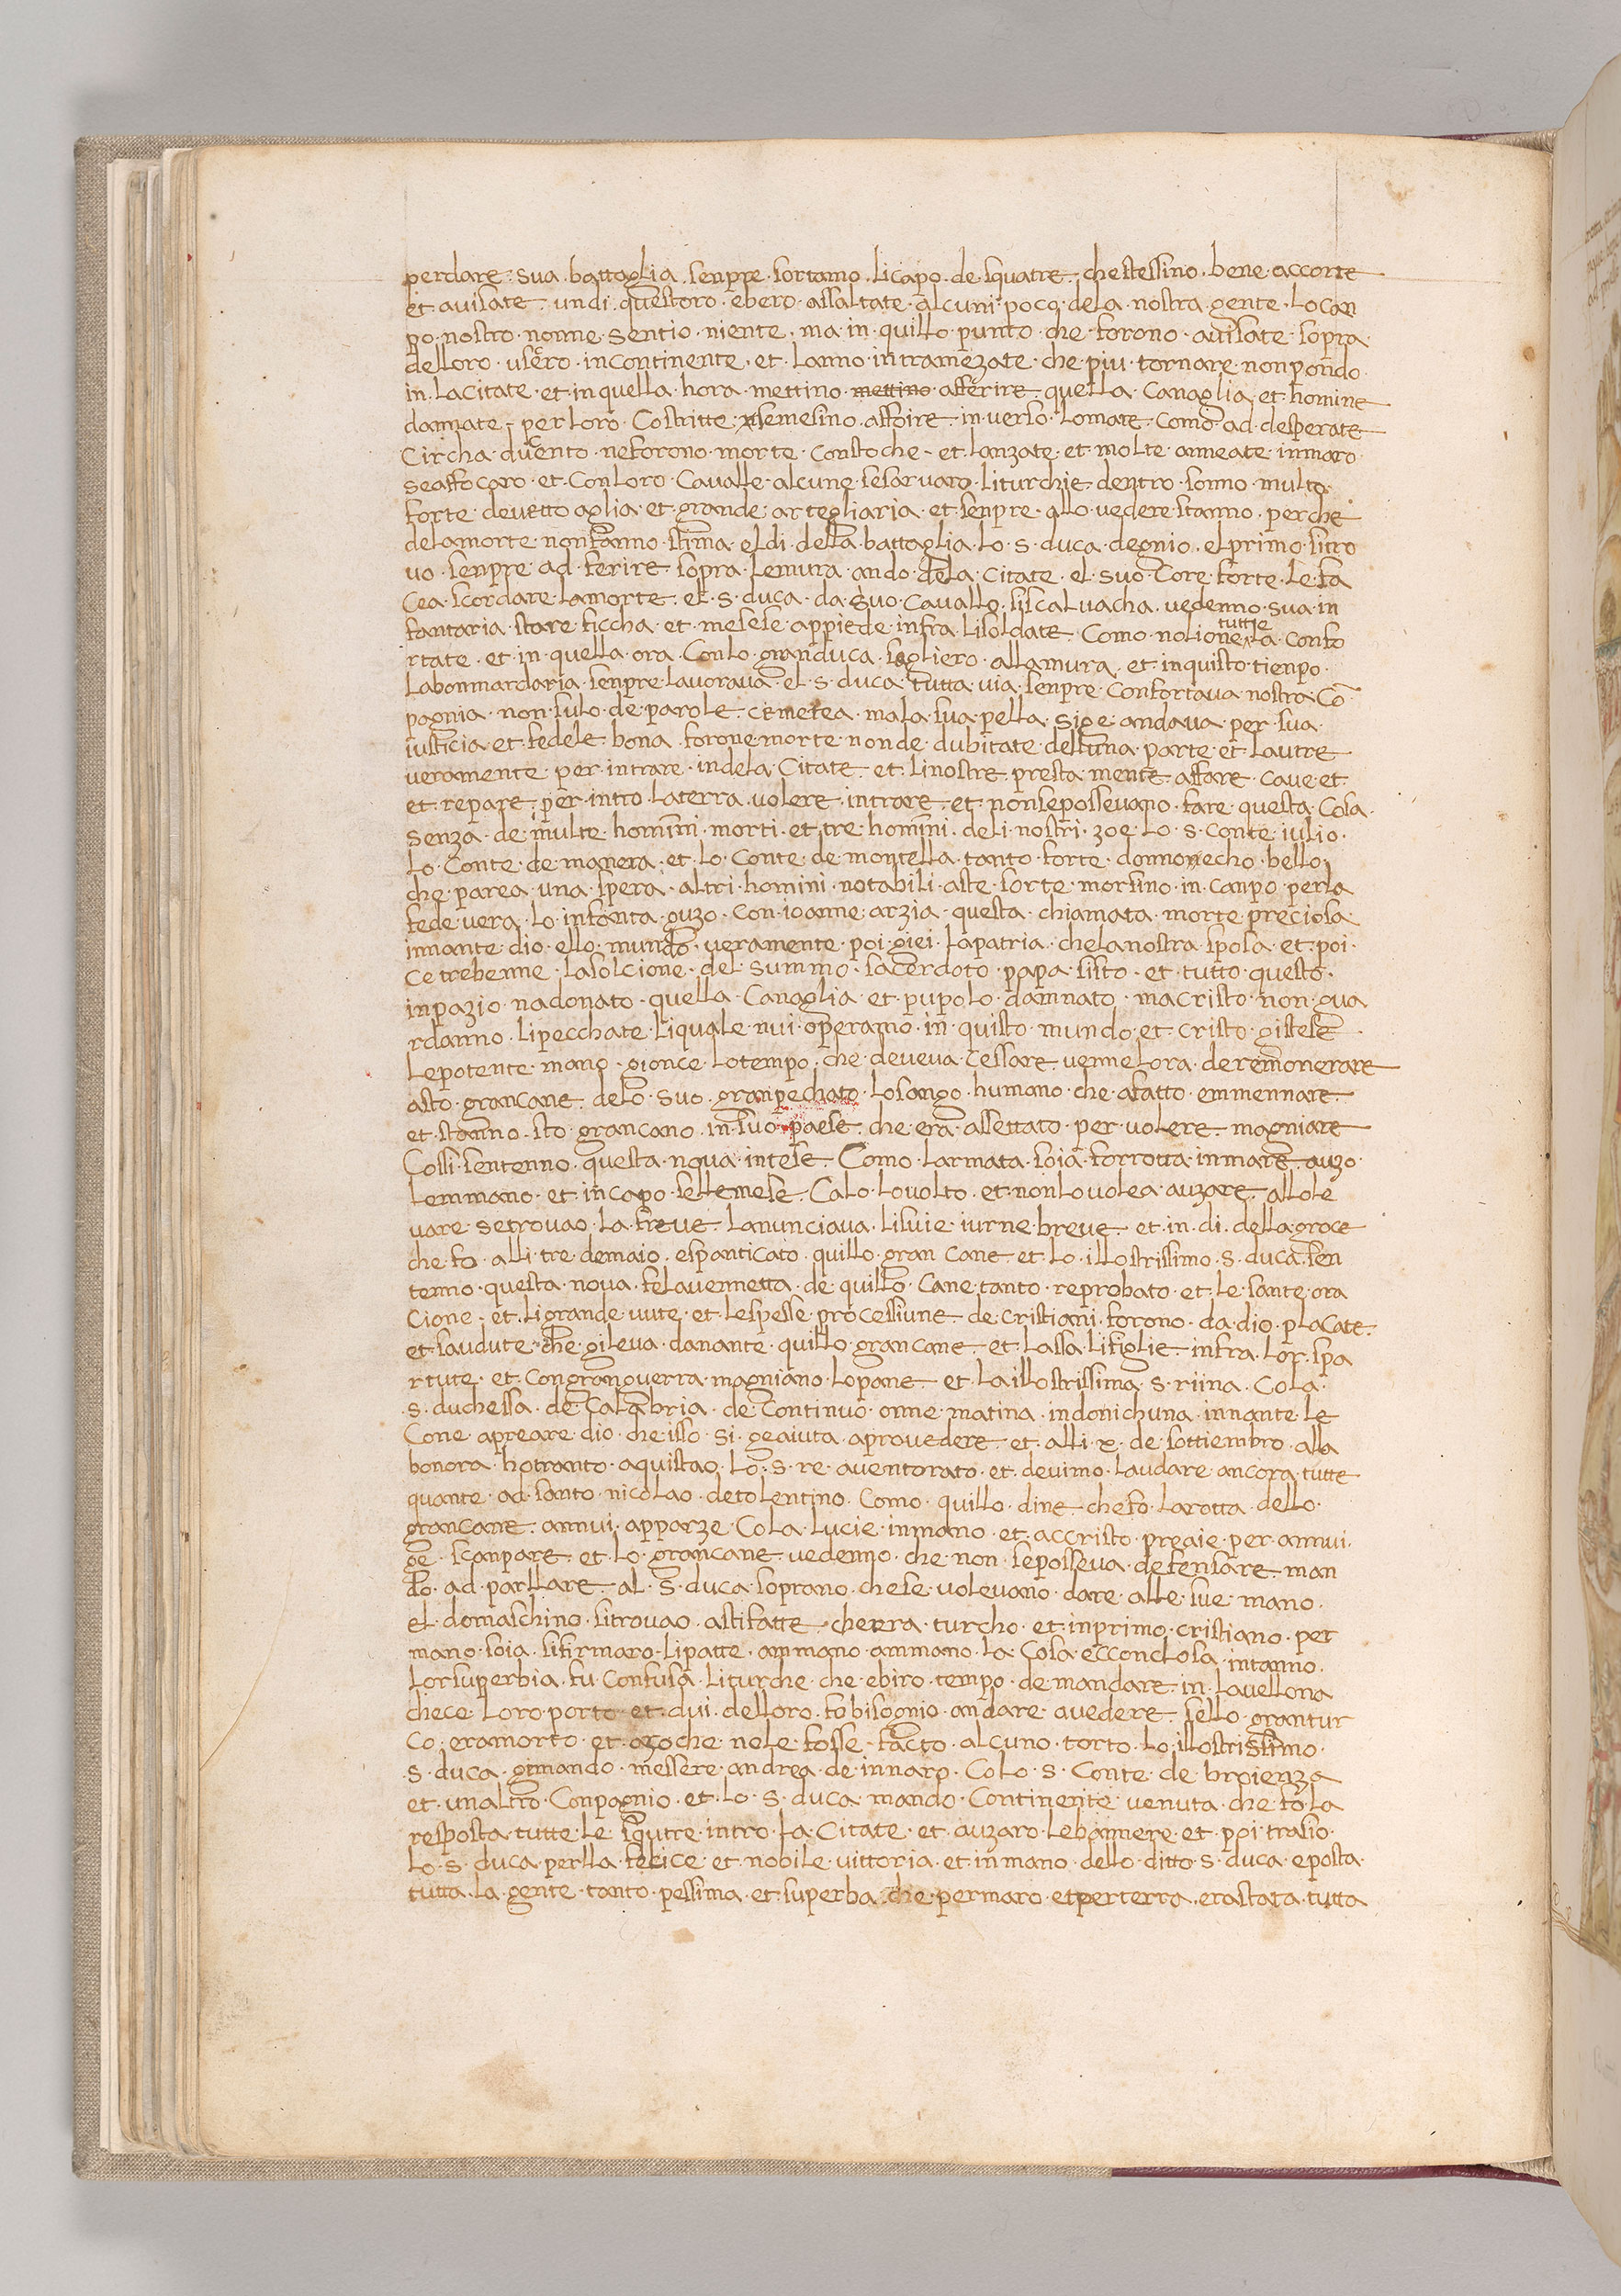 perdare · sua · battaglia · senpre · sortamo · li capo · de · squatre · che stessino · bene · accorte
et · avisate · undi · questoro · ebero · assaltate · alcuni · poco · dela · nostra · gente · Lo can
po · nostro · nonne · sentio · niente · ma · in · quillo · punto · che · forono · avisate · sopra ·
delloro · usero · incontinente · et · Lanno · intramezate · che · piu · tornare · non pondo ·
in · La citate · et in quella · hora · mettino · mettino · afferire · quella · canaglia · et · homine
dannate · per Loro · Costritte · semesino · affoire · in verso · Lo mare · Como · ad · desperate
Circha · ducento · ne forono · morte · con stoche · et · Lanzate · et · molte · anneate · in maro ·
se affocaro · et · Con Loro · Cavalle · alcune · se sarvaro · Li turchie · dentro · sonno · multo ·
forte · de vetto aglia · et · grande · artegliaria · et · senpre · allo · vedere · stanno · perche
dela morte · non fanno · stima · el di · della · battaglia · Lo · s · duca · degnio · el primo · sitro
vo · senpre · ad · ferire · sopra · Le mura · ando · dela · citate · el · suo · Core · forte · Le fa
cea · scordare · La morte · el · s · duca · da · suo · cavallo · si scalvacha · vedenno · sua · in
fantaria · stare · ficcha · et · mesese · appiede · infra · Li soldate · Como · no Lione · tutte · La · confo
rtate · et · in · quella · ora · Con Lo · gran duca · sagliero · alla mura · et · in quisto · tienpo ·
La bonmardaria · senpre · Lavorava · el · s · duca · tutta · via · senpre · confortava · nostra · Cō
pagnia · non · sulo · de · parole · ce metea · ma la · sua · pella · si ge · andava · per · sua ·
iusticia · et · fedele · bona · forone morte · non de · dubitate · dell una · parte · et · Lautre
veramente · per · intrare · in dela · citate · et · Li nostre · presta mente · affare · cave · et ·
et · repare · per · intro · La terra · volere · intrare · et · non se possevano · fare · questa · Cosa ·
senza · de · multe · homini · morti · et · tre · homini · deli · nostri · zoe · Lo · s · conte · iulio ·
Lo · Conte · de · manera · et · Lo · Conte · de · montella · tanto · forte · donno necho · bello ·
che · parea · una · spera · altri · homini · notabili · aste · sorte · morsino · in · canpo · perla
fede · vera · Lo · infanta · guzo · con · ioanne · arzia · questa · chiamata · morte · preciosa ·
innante · dio · ello · mundo · veramente · poi · giei · La patria · che la nostra · sposa · et · poi ·
ce trebenne · La solcione · del · summo · sacerdoto · papa · sisto · et · tutto · questo ·
inpazio · na donato · quella · canaglia · et · pupolo · damnato · ma cristo · non · gua
rdanno · Li pecchate · Li quale · nui · operamo · in · quisto · mundo · et · cristo · gistese ·
Le potente · mano · gionce · Lo tempo · che · deveva · cessare · venne Lora · de remonerare
asto · gran cane · delo · suo · gran pechato · Lo sango · humano · che · a fatto · emmennare
et · stanno · sto · gran cano · in · suo · paese · che · era · assettato · per · volere · magniare
Cossi · sentenno · questa · nova · intese · Como · Larmata · soia · forrotta · in mare · auzo ·
Lemmano · et · in capo · sellemese · Calo · Lo volto · et · non Lo volea · auzare · allo Le
vare · se trovao · La freve · La nunciava · Li suie · iurne · breve · et · in · di · della · groce
che · fo · alli · tre · de maio · espanticato · quillo · gran · cane · et · Lo · illostrissimo · s · duca · sen
tenno · questa · nova · fe La vennetta · de · quillo · cane · tanto · reprobato · et · Le · sante · ora
cione · et · Li grande · vute · et · Le spesse · processiune · de · cristiani · forono · da · dio · placate ·
et · saudute · che · gi leva · danante · quillo · gran cane · et · Lassa · Li figlie · infra · Lor · spa
rtute · et · con gran guerra · magniano · Lo pane · et · La illostrissima · s · riina · cola ·
s · duchessa · de Calabria · de continuo · onne · matina · indonichuna · innante · Le
Cone · apreare · dio · che isso · si · ge aiuta · a provedere · et · alli · x · de · sottiembro · alla
bonora · hotranto · aquistao · Lo · s · re · aventorato · et · devimo · Laudare · ancora · tutte
quante · ad · santo · nicolao · de tolentino · Como · quillo · dine · che fo · La rotta · dello ·
gran cane · annui · apparze · Co La · Lucie · in mano · et · accristo · preaie · per · annui ·
ge · scanpare · et · Lo · gran cane · vedenno · che · non · se posseva · defensare · man
do · ad · parllare · al · s · duca · soprano · che se · volevano · dare · alle · sue · mano ·
el · domaschino · si trovao · asti fatte · cherra · turcho · et · in primo · cristiano · per
mano · soia · si firmaro · Li patte · ammano · ammano · La · cosa · ecconclosa · intanno ·
Lor superbia · fu · confusa · Li turche · che · ebiro · tempo · de mandare · in · Lavellona
che ce · Loro · porto · et · dui · delloro · fo bisognio · andare · avedere · sello · gran tur
co · era morto · et · azo che · ne le · fosse · facto · alcuno · torto · Lo · illostrissimo ·
s · duca · gi mando · messere · andrea · de innaro · Co Lo · s · Conte · de · broienza
et · unaltro · Conpagnio · et · Lo · s · duca · mando · Continente · venuta · che fo La
resposta · tutte · Le · squatre · intro · La · citate · et · auzaro · Le bannere · et · poi · trasio ·
Lo · s · duca · perlla · felice · et · nobile · vittoria · et · in mano · dello · ditto · s · duca · e posta ·
tutta · la · gente · tanto · pessima · et · superba · che · per maro · et per terra · era stata · tutta